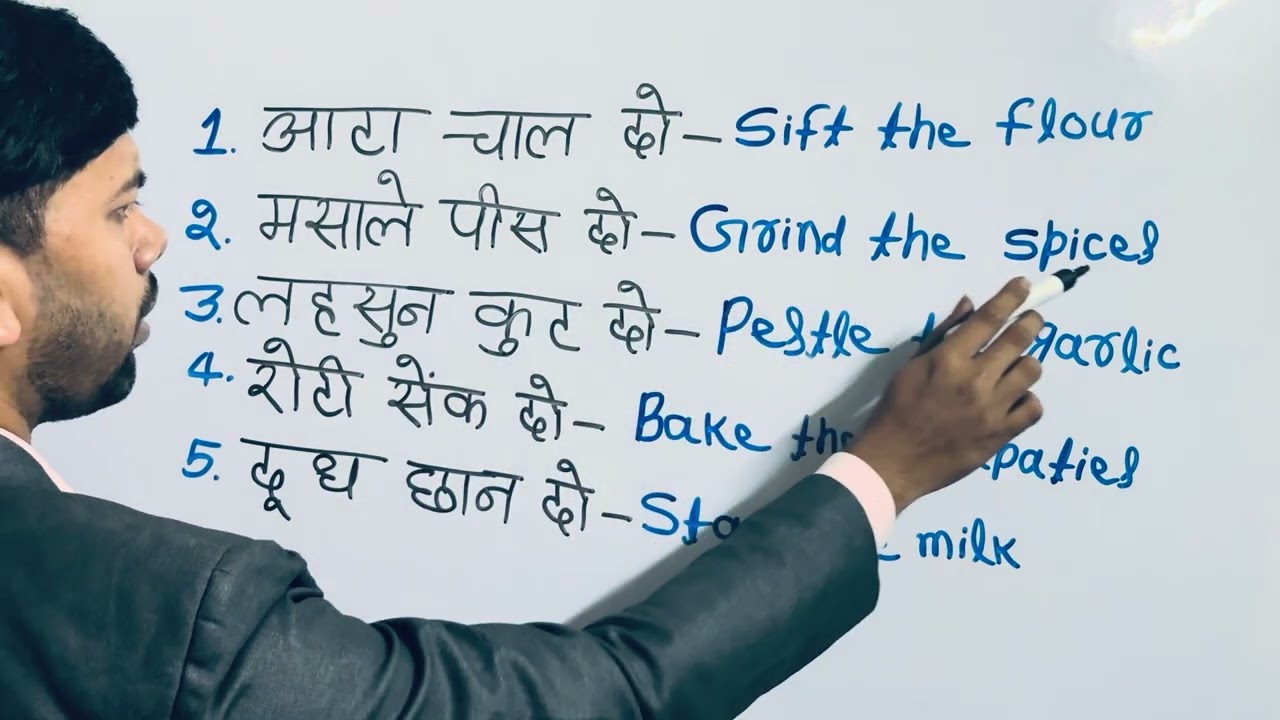 1. आटा चाल दो - Sift the flour
2. मसाले पीस दो - Grind the spices
3. लहसुन कुट दो - Pestle garlic
4. रोटी सेंक दो - Bake
5. दूध छान दो - milk